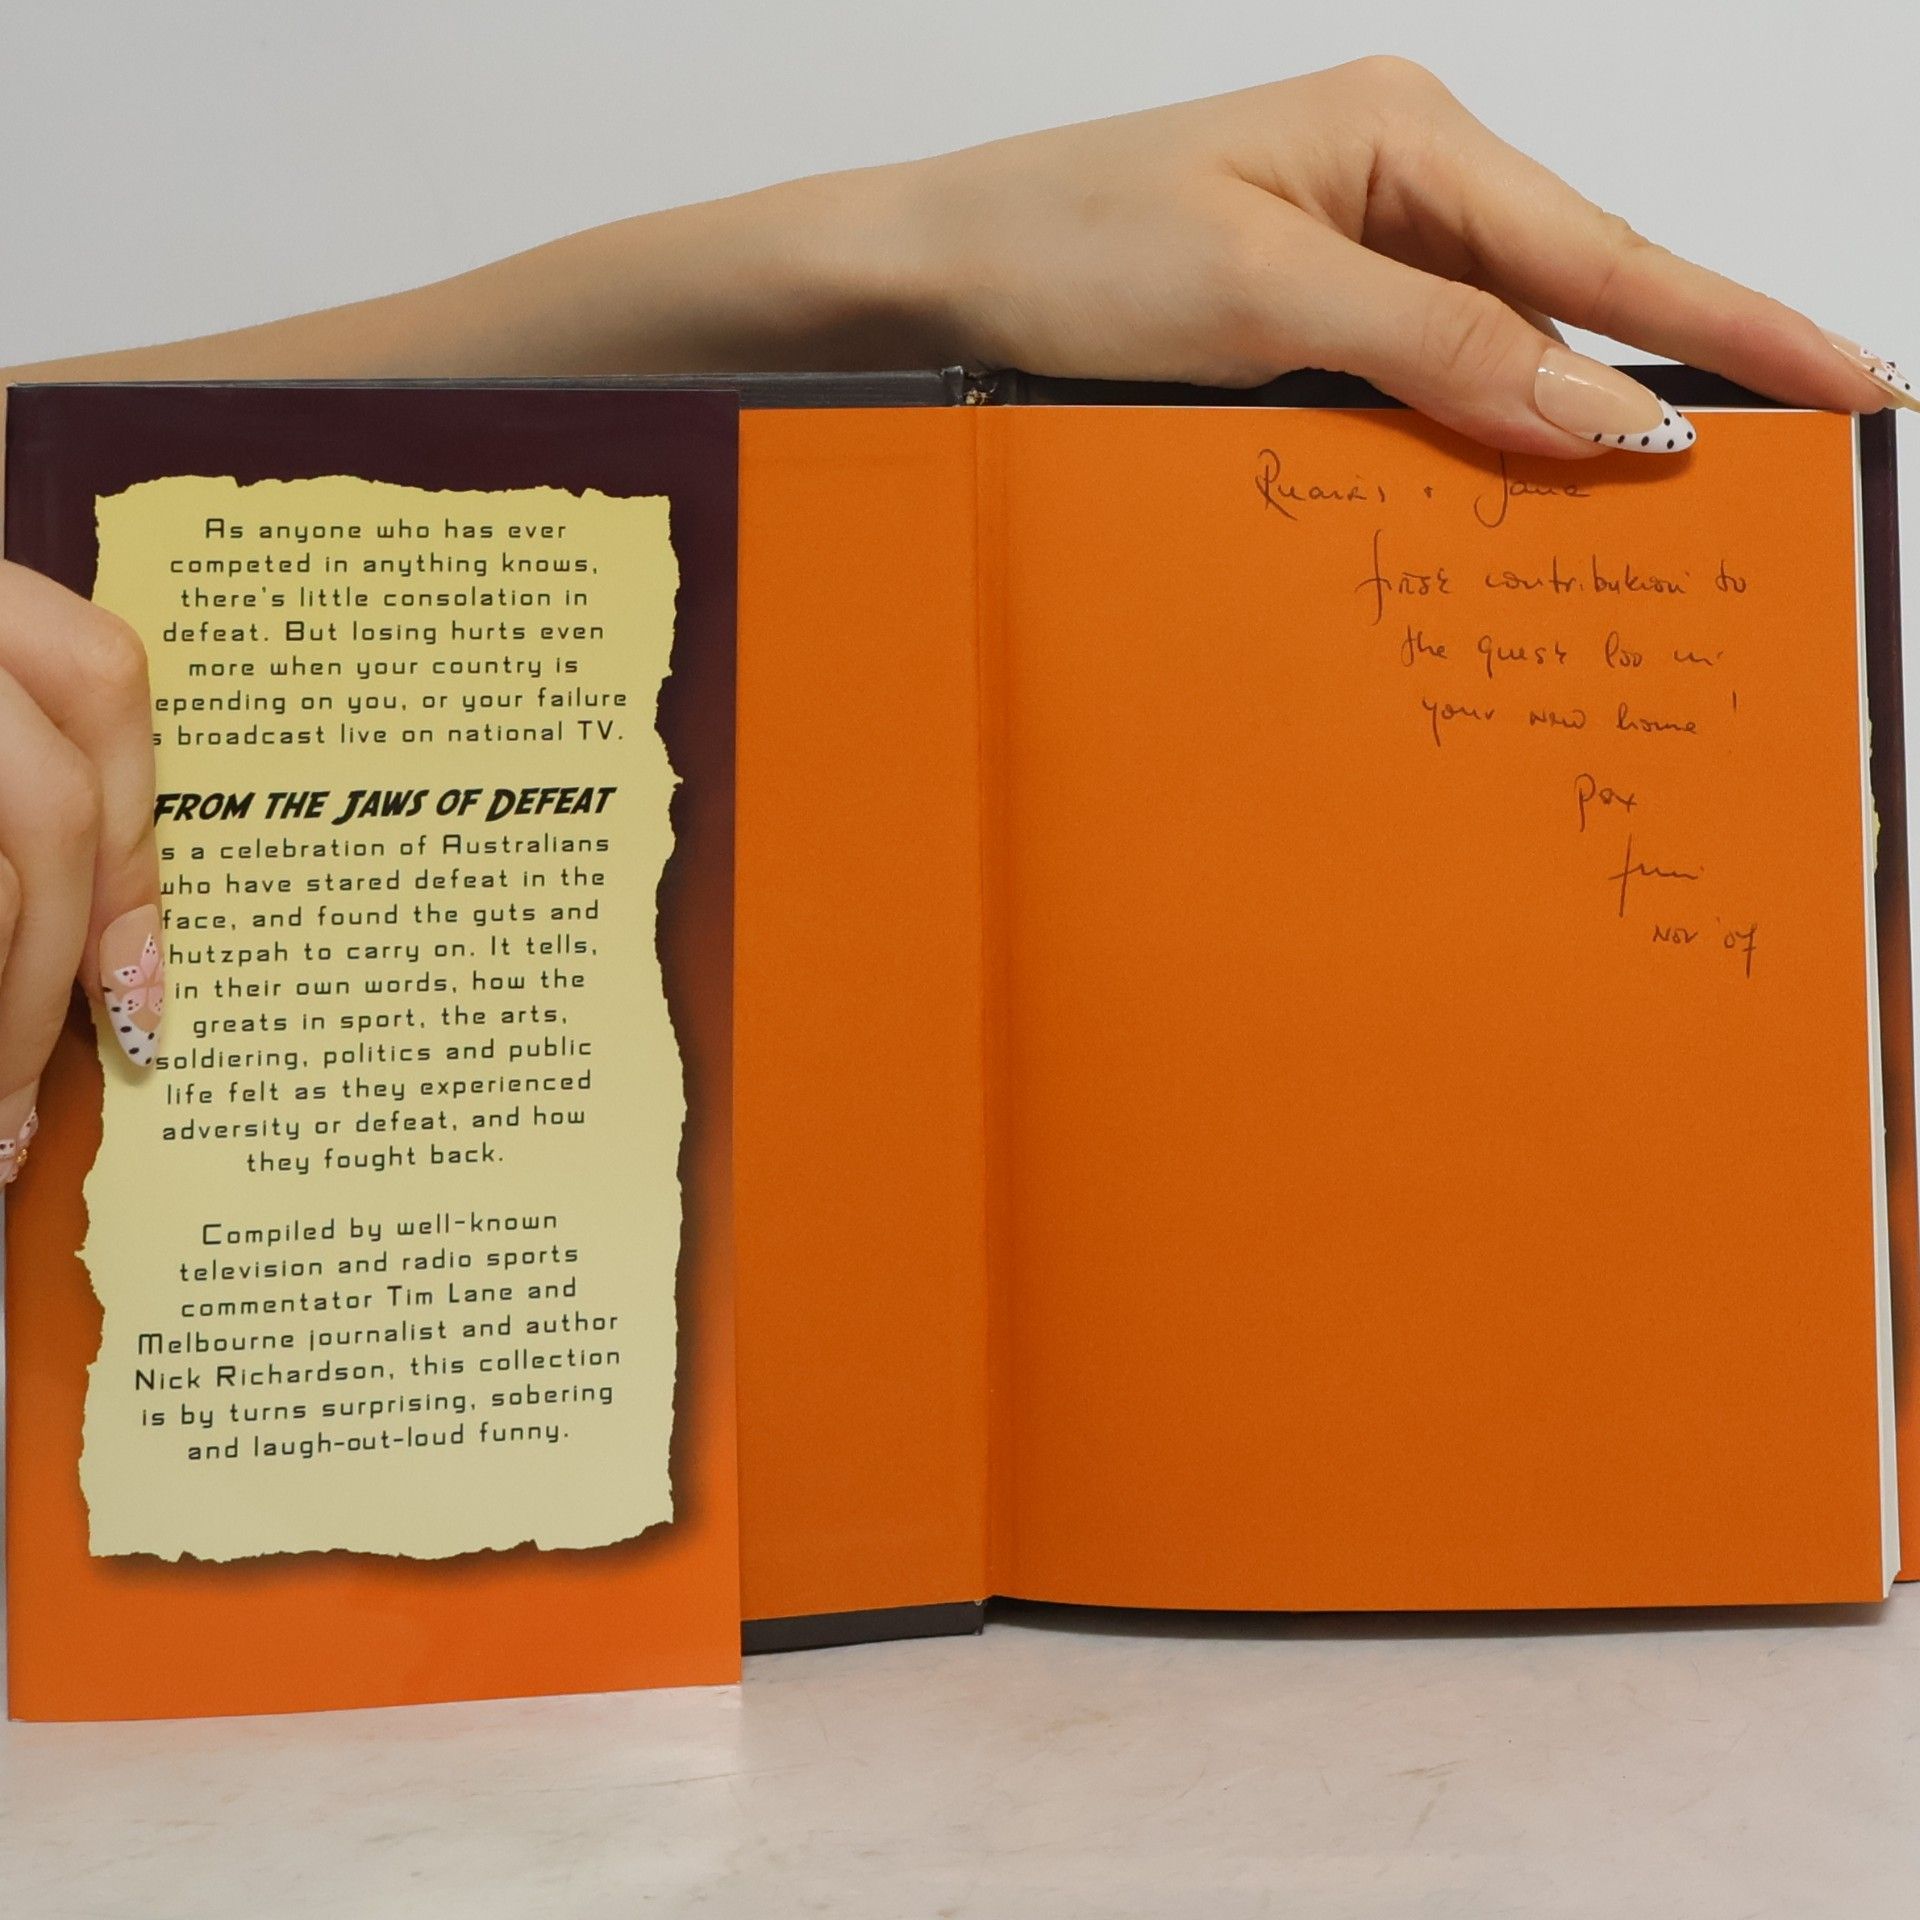 As anyone who has ever
competed in anything knows,
there's little consolation in
defeat. But losing hurts even
more when your country is
epending on you, or your failure
s broadcast live on national TV.
FROM THE JAWS OF DEFEAT
s a celebration of Australians
who have stared defeat in the
face, and found the guts and
hutzpah to carry on. It tells,
in their own words, how the
greats in sport, the arts,
soldiering, politics and public
life felt as they experienced
adversity or defeat, and how
they fought back.
Compiled by well-known
television and radio sports
commentator Tim Lane and
Melbourne journalist and author
Nick Richardson, this collection
is by turns surprising, sobering
and laugh-out-loud funny.
+ Jane
first contribution to
the guest loo in
your new home!
Nov '07